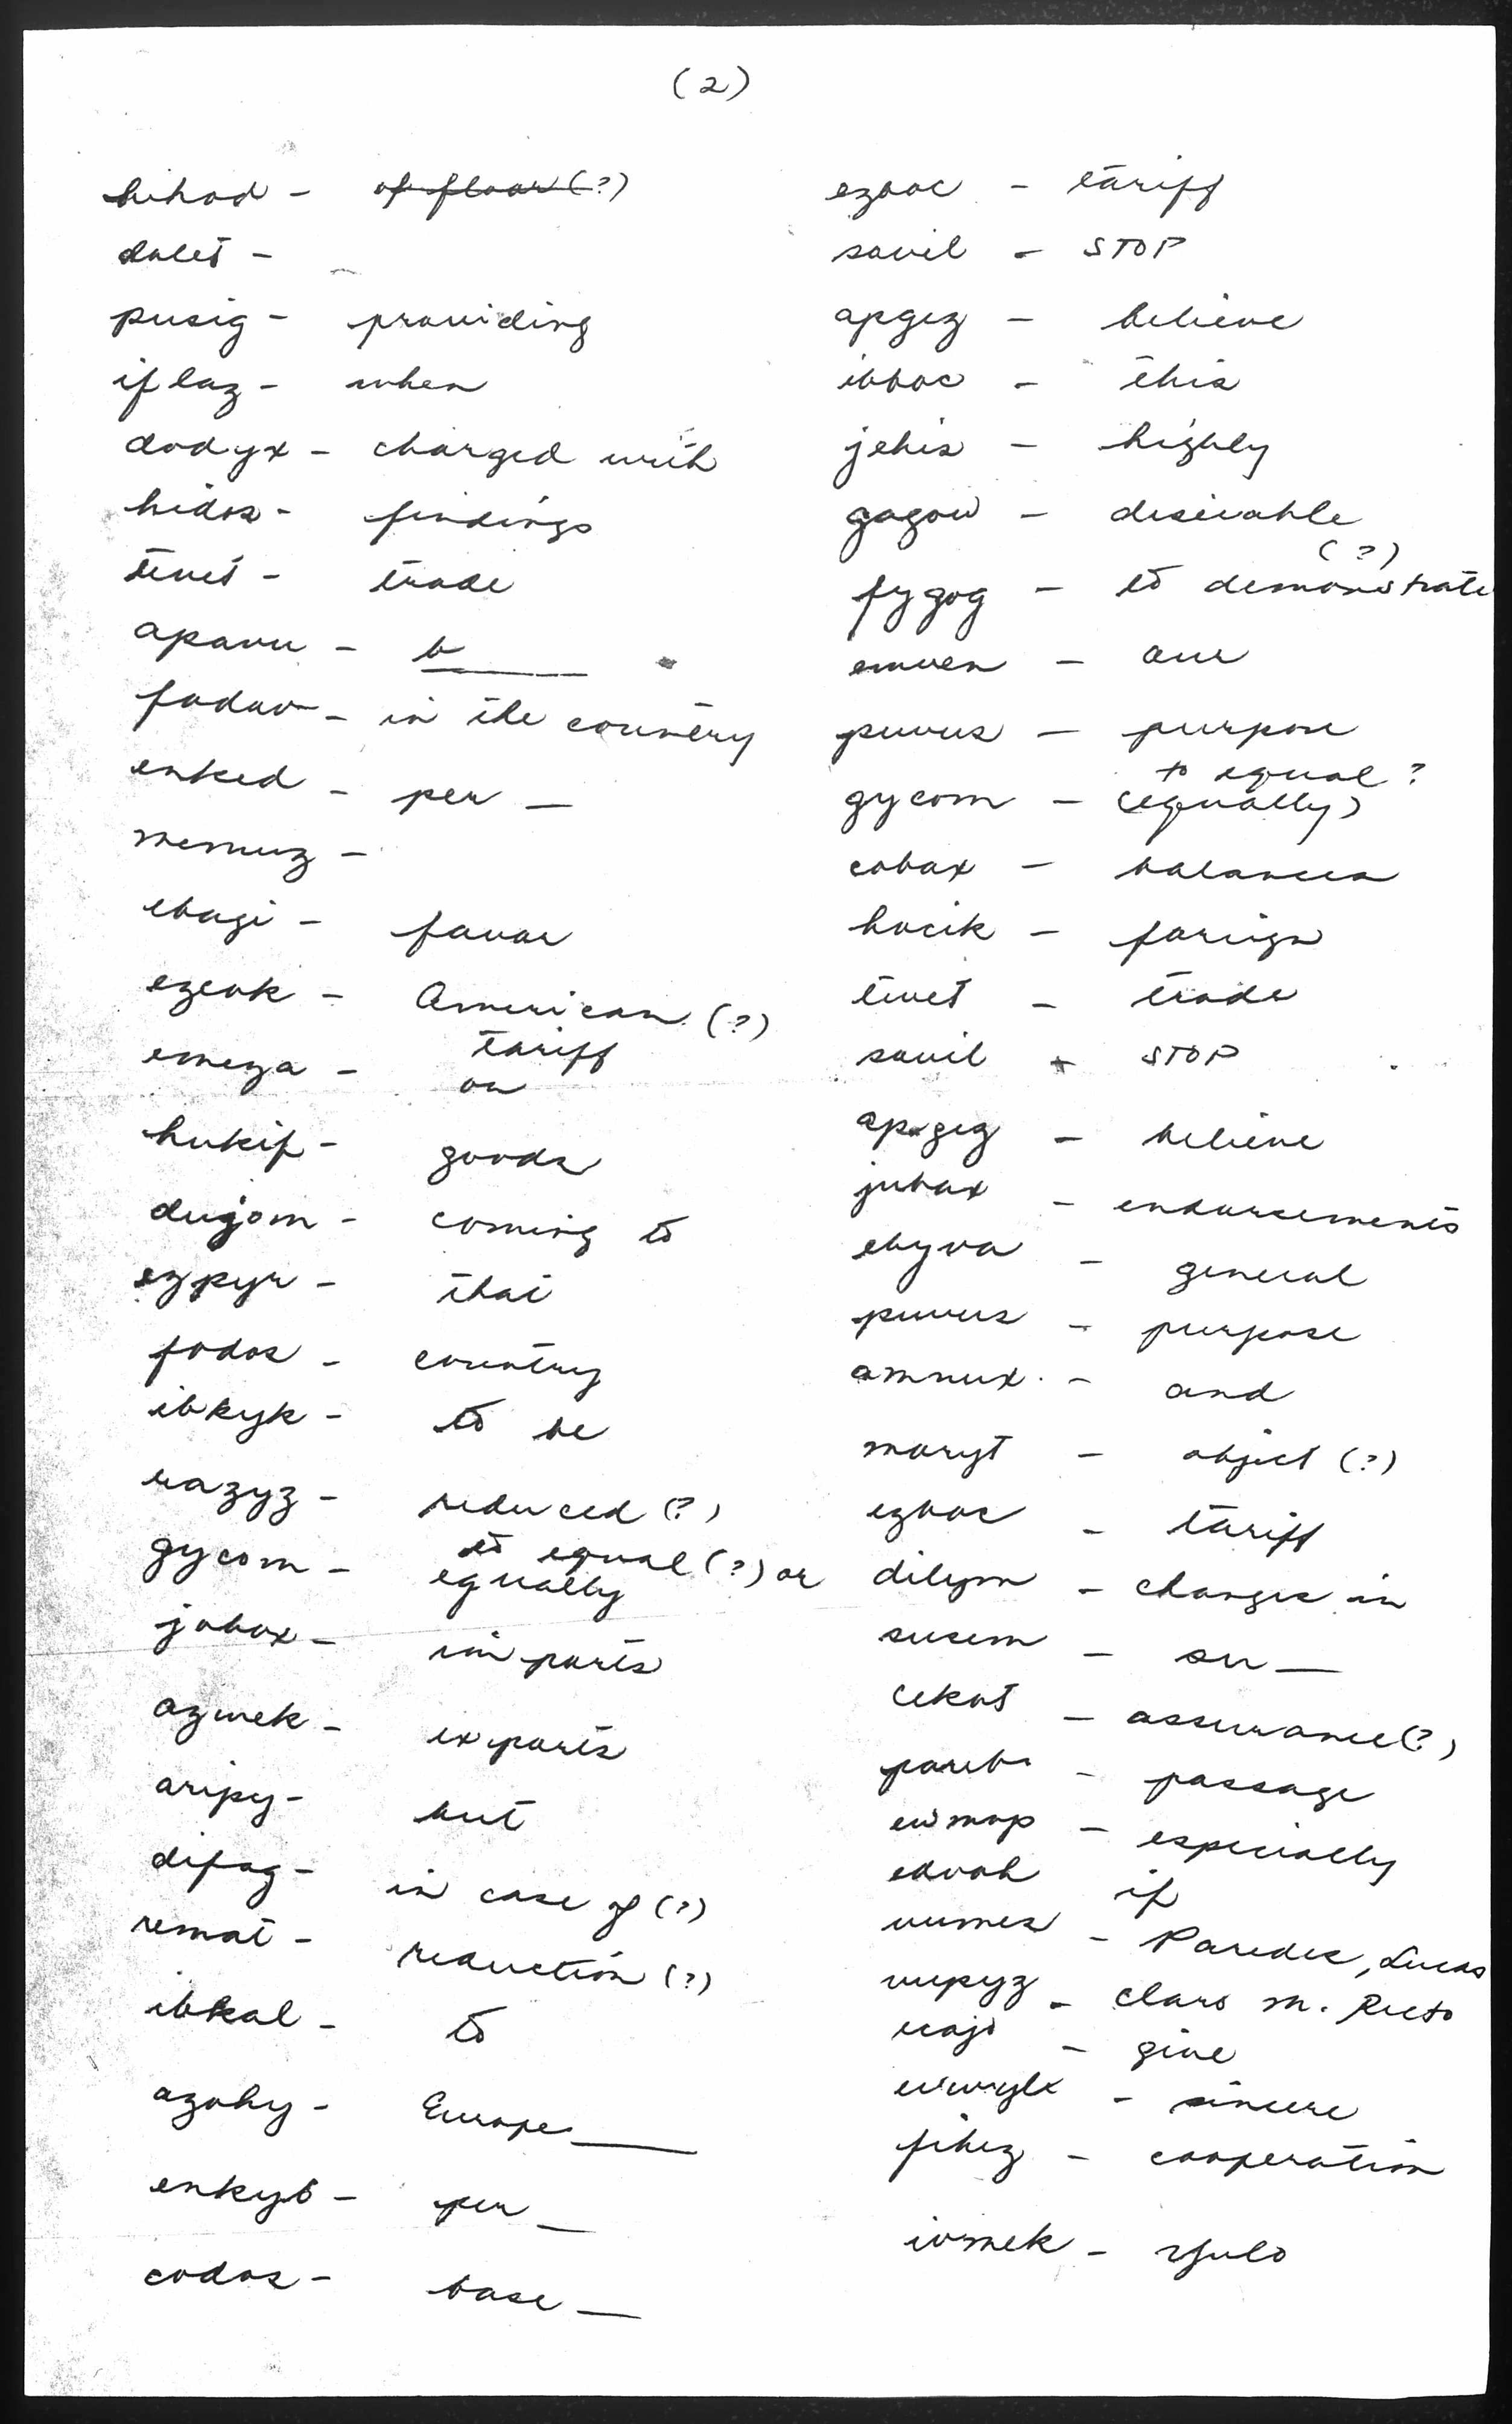 (2)
hihod - of floor (?)
dalet -
pusig - providing
iflaz - when
dodyx - charged with
hidos - findings
tevet - trade
apavu - b____
fodav - in the country
enked - per —
memuz -
ebagi - favor
ezeok - American (?)
tariff
emeza - on
hukif - goods
dujom - coming to
ezpyr - that
fodos - country
ibkyk - to be
razyz - reduced (?)
to equal (?) or
gycom - equally
jobox - imports
azwek - exports
aripy - but
difag - in case of (?)
remat - reduction (?)
ibkal - to
azohy - Europe____
enkyb - per —
codos - base —
ezboc - tariff
savil - STOP
apgez - believe
ibboc - this
jehis - highly
gagow - desirable
(?)
fygog - to demonstrate
emven - our
puvus - purpose
to equal ?
gycom - (equally)
cobax - balances
hocik - foreign
tevet - trade
savil - STOP
apgez - believe
jubax - endorsements
ebyva - general
puvus - purpose
amnux - and
moryt - object (?)
ezboc - tariff
dilym - changes in
susem - su —
cekot - assurance (?)
pareb - passage
ewmop - especially
edvoh if
vumes - Paredes, Lucas
vupyz - Claro M. Recto
ucajo - give
ewwylx - sincere
fihez - cooperation
ivmek - Yulo